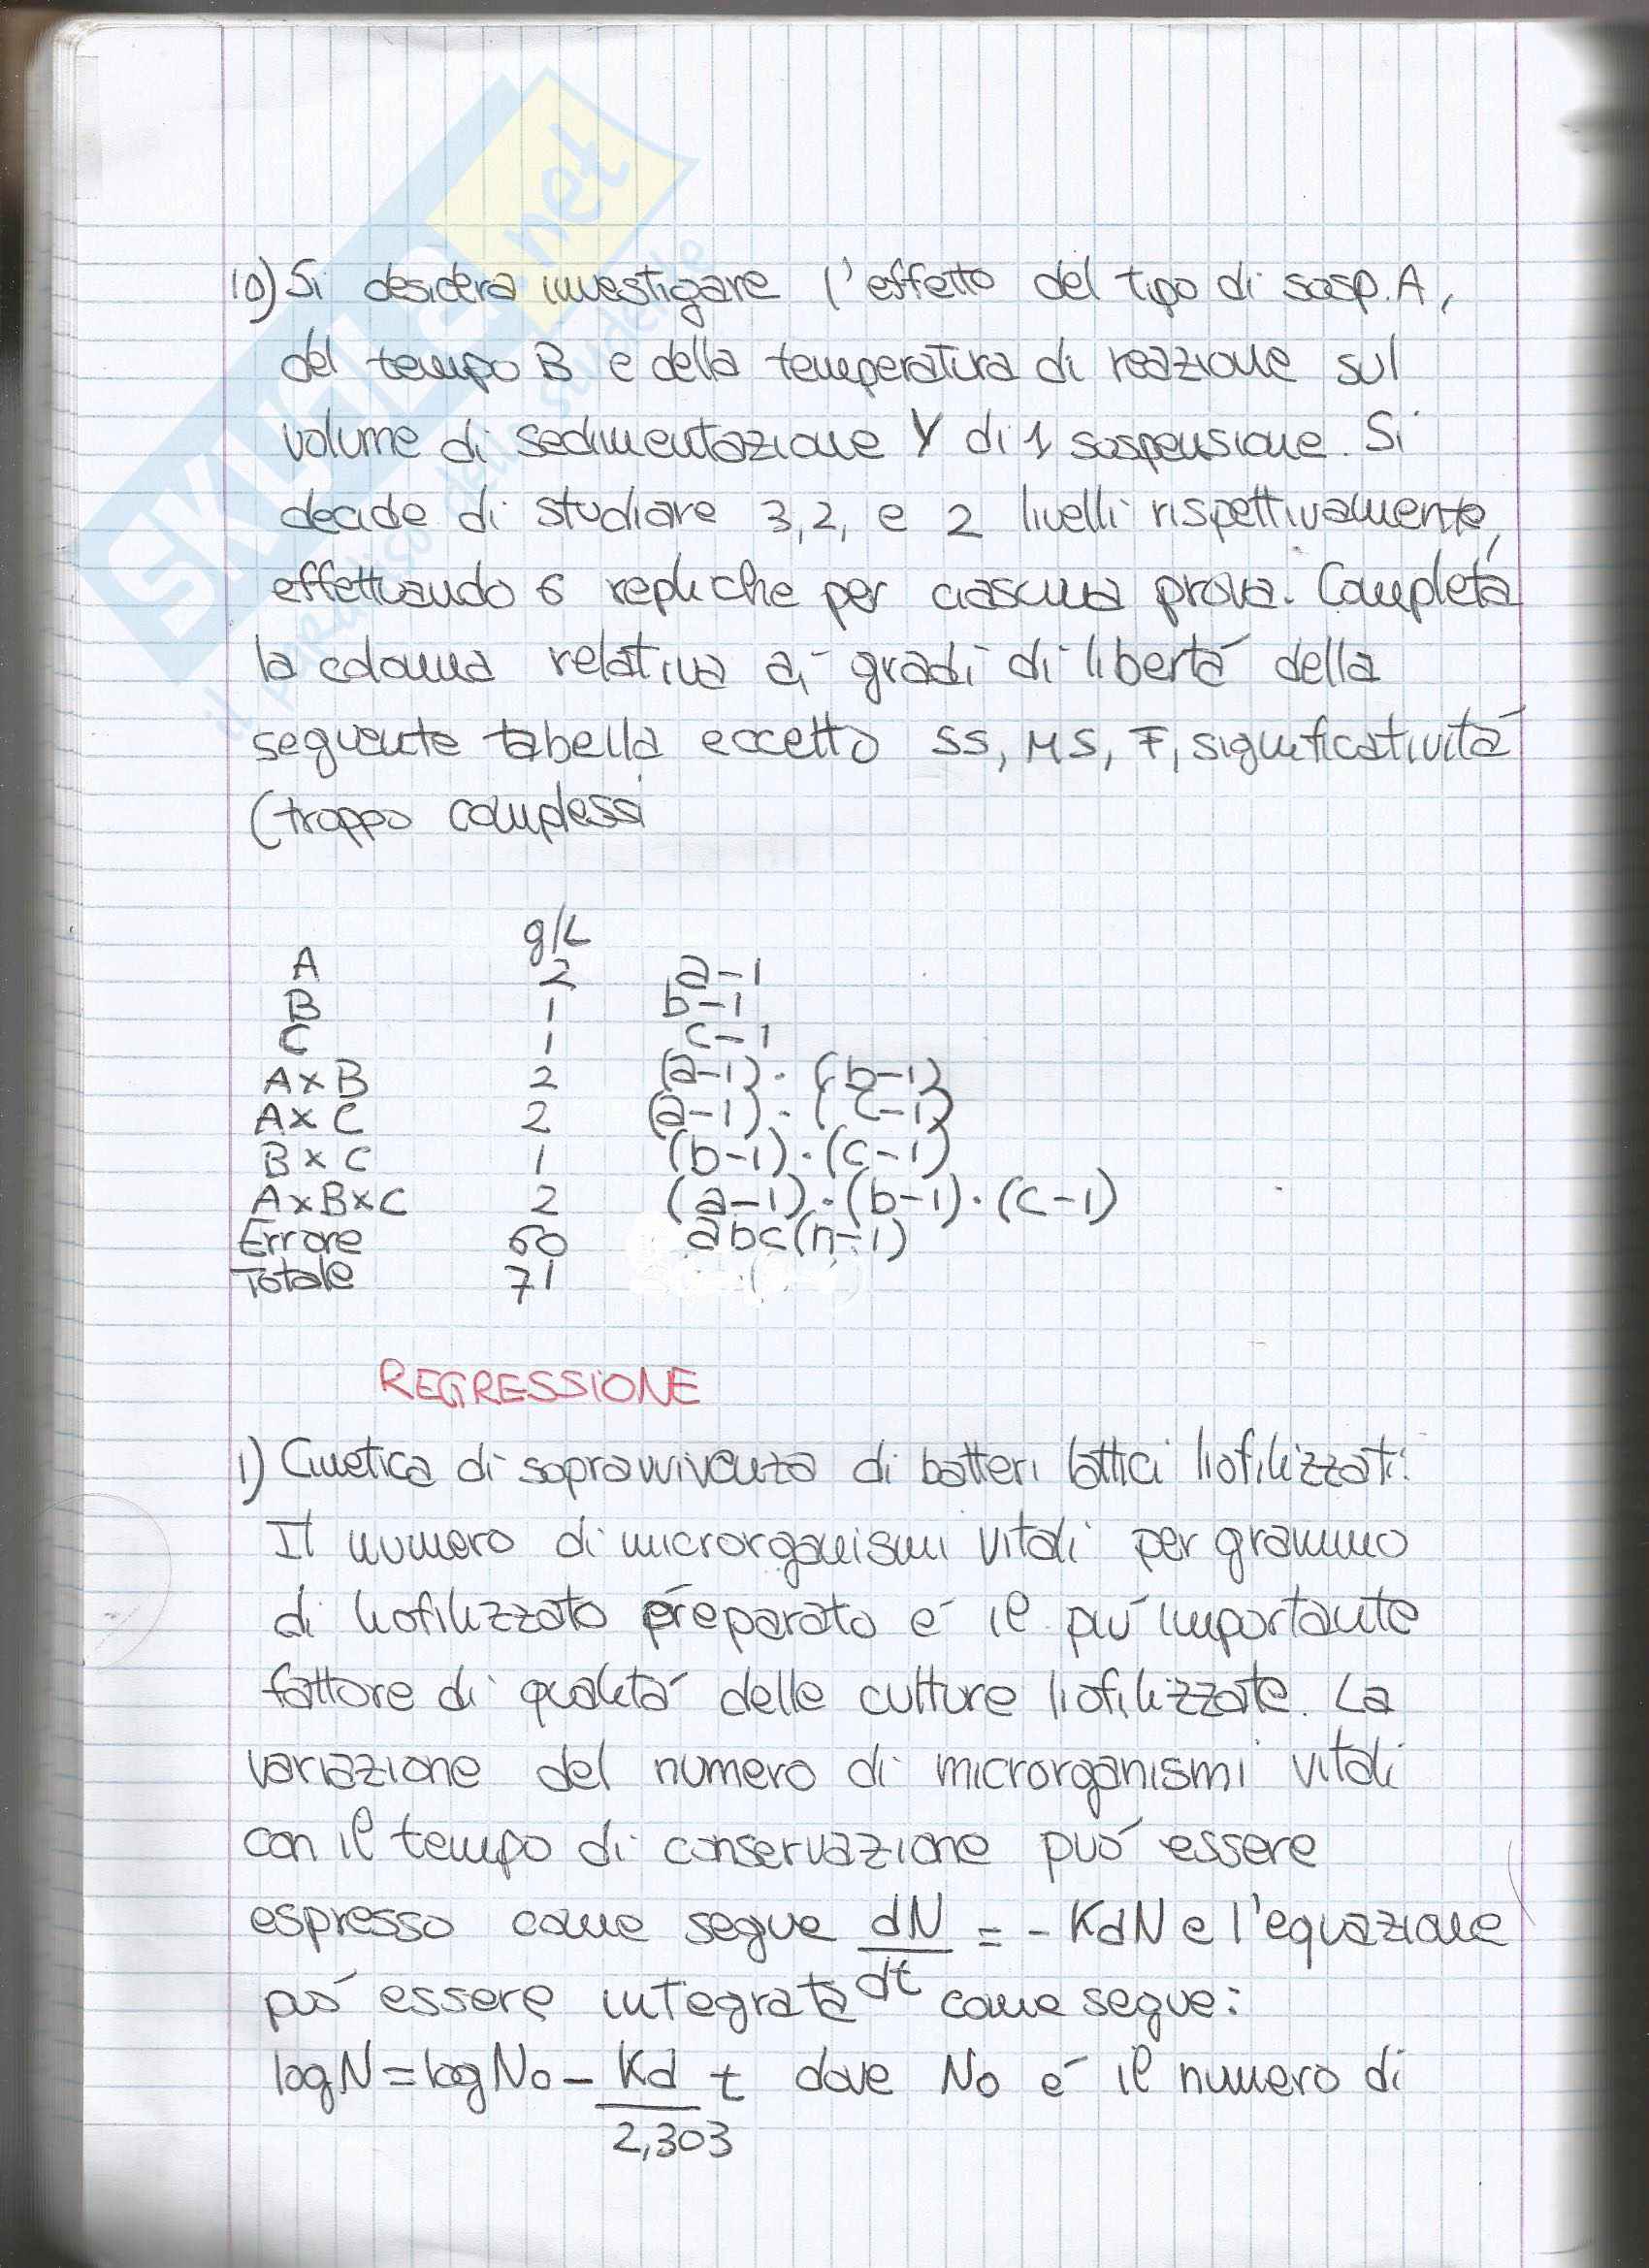 10) Si desidera investigare l'effetto del tipo di sosp. A,
del tempo B e della temperatura di reazione sul
volume di sedimentazione Y di 1 sospensione. Si
decide di studiare 3, 2, e 2 livelli rispettivamente,
effettuando 6 repliche per ciascuna prova. Completa
la colonna relativa ai gradi di libertá della
seguente tabella eccetto SS, MS, F, significativitá
(troppo complessi
g/L
A 2 a-1
B 1 b-1
C 1 c-1
A x B 2 (a-1)·(b-1)
A x C 2 (a-1)·(c-1)
B x C 1 (b-1)·(c-1)
A x B x C 2 (a-1)·(b-1)·(c-1)
Errore 60 abc(n-1)
Totale 71
REGRESSIONE
1) Cinetica di sopravvivenza di batteri lattici liofilizzati:
Il numero di microrganismi vitali per grammo
di liofilizzato preparato é il piú importante
fattore di qualitá delle culture liofilizzate. La
variazione del numero di microrganismi vitali
con il tempo di conservazione puó essere
espresso come segue dN/dt = - KdN e l'equazione
puó essere integrata come segue:
logN = logNo - Kd/2,303 t dove No é il numero di
SKUOLA.net
il paradiso dello studente